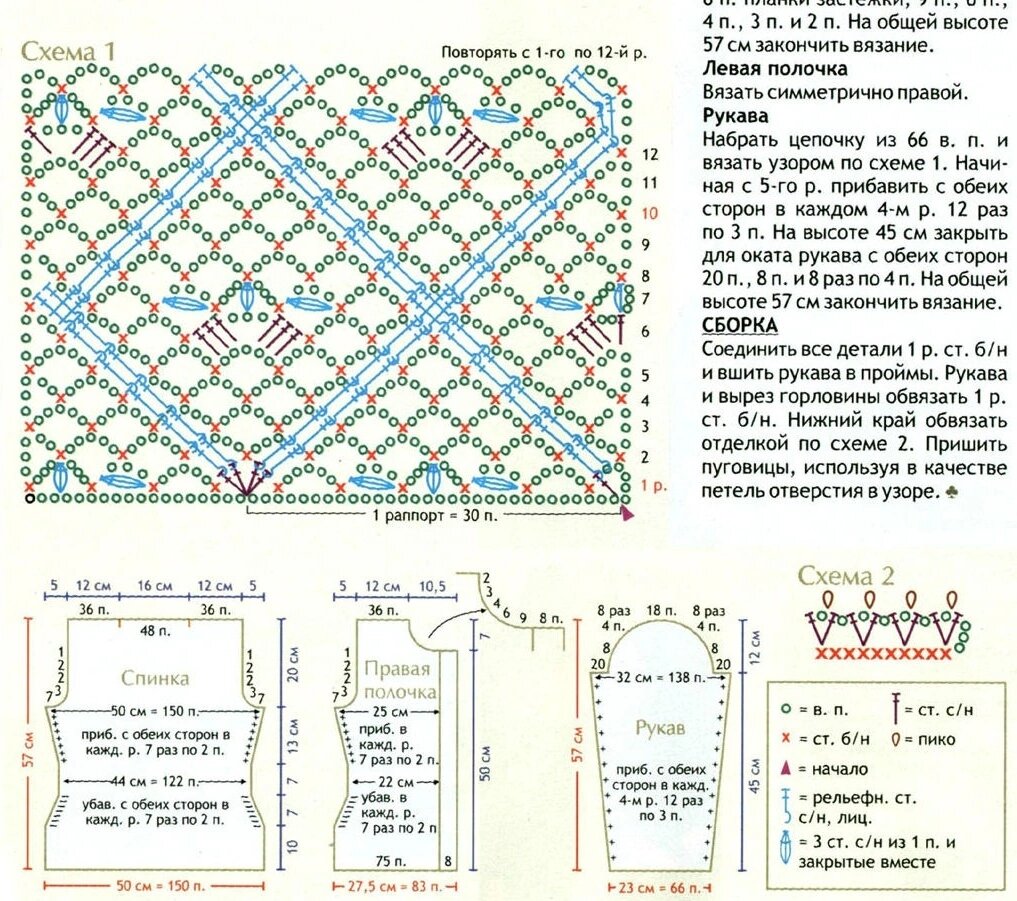 6 п. планки застежки, 9 п., 6 п.,
4 п., 3 п. и 2 п. На общей высоте
57 см закончить вязание.
Левая полочка
Вязать симметрично правой.
Рукава
Набрать цепочку из 66 в. п. и
вязать узором по схеме 1. Начи-
ная с 5-го р. прибавить с обеих
сторон в каждом 4-м р. 12 раз
по 3 п. На высоте 45 см закрыть
для оката рукава с обеих сторон
20 п., 8 п. и 8 раз по 4 п. На общей
высоте 57 см закончить вязание.
СБОРКА
Соединить все детали 1 р. ст. б/н
и вшить рукава в проймы. Рукава
и вырез горловины обвязать 1 р.
ст. б/н. Нижний край обвязать
отделкой по схеме 2. Пришить
пуговицы, используя в качестве
петель отверстия в узоре. ♣
Схема 1
Повторять с 1-го по 12-й р.
12
11
10
9
8
7
6
5
4
3
2
1 р.
1 раппорт = 30 п.
5 12 см 16 см 12 см 5
36 п. 36 п.
48 п.
1
2
2
3
7
1
2
2
3
7
Спинка
50 см = 150 п.
приб. с обеих сторон в
кажд. р. 7 раз по 2 п.
44 см = 122 п.
убав. с обеих сторон в
кажд. р. 7 раз по 2 п.
57 см
20 см
13 см
7
7
10
50 см = 150 п.
5 12 см 10,5
36 п.
2
3
4
6
9
8 п.
7
1
2
2
3
7
Правая
полочка
25 см
приб. в
кажд. р.
7 раз по 2 п.
22 см
убав. в
кажд. р.
7 раз по 2 п
75 п. 8
50 см
27,5 см = 83 п.
8 раз 18 п. 8 раз
4 п. 4 п.
8 8
20 20
32 см = 138 п.
Рукав
приб. с обеих
сторон в кажд.
4-м р. 12 раз
по 3 п.
57 см
12 см
45 см
23 см = 66 п.
Схема 2
= в. п. = ст. с/н
= ст. б/н = пико
= начало
= рельефн. ст.
с/н, лиц.
= 3 ст. с/н из 1 п. и
закрытые вместе